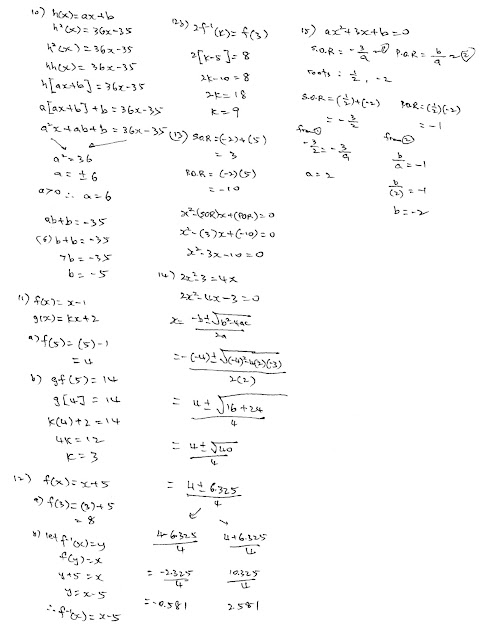 10) h(x) = ax+b
h²(x) = 36x-35
h²(x) = 36x-35
hh(x) = 36x-35
h[ax+b] = 36x-35
a[ax+b]+b = 36x-35
a²x+ab+b = 36x-35
a² = 36
a = ±6
a>0 ∴ a=6
ab+b = -35
(6)b+b = -35
7b = -35
b = -5
11) f(x) = x-1
g(x) = kx+2
a) f(5) = (5)-1
= 4
b) gf(5) = 14
g[4] = 14
k(4)+2 = 14
4k = 12
k = 3
12) f(x) = x+5
a) f(3) = (3)+5
= 8
b) let f⁻¹(x) = y
f(y) = x
y+5 = x
y = x-5
∴ f⁻¹(x) = x-5
2f⁻¹(k) = f(3)
2[k-5] = 8
2k-10 = 8
2k = 18
k = 9
13) S.O.R = (-2)+(5)
= 3
P.O.R = (-2)(5)
= -10
x²-(SOR)x+(POR) = 0
x²-(3)x+(-10) = 0
x²-3x-10 = 0
14) 2x²-3 = 4x
2x²-4x-3 = 0
x = -b±√b²-4ac / 2a
= -(-4)±√(-4)²-4(2)(-3) / 2(2)
= 4±√16+24 / 4
= 4±√40 / 4
= 4±6.325 / 4
4-6.325 / 4 4+6.325 / 4
= -2.325 / 4 10.325 / 4
= -0.581 2.581
15) ax²+3x+b = 0
S.O.R = -3/a -① P.O.R = b/a -②
roots: 1/2, -2
S.O.R = (1/2)+(-2) P.O.R = (1/2)(-2)
= -3/2 = -1
from ① from ②
-3/2 = -3/a b/a = -1
a = 2 b/(2) = -1
b = -2